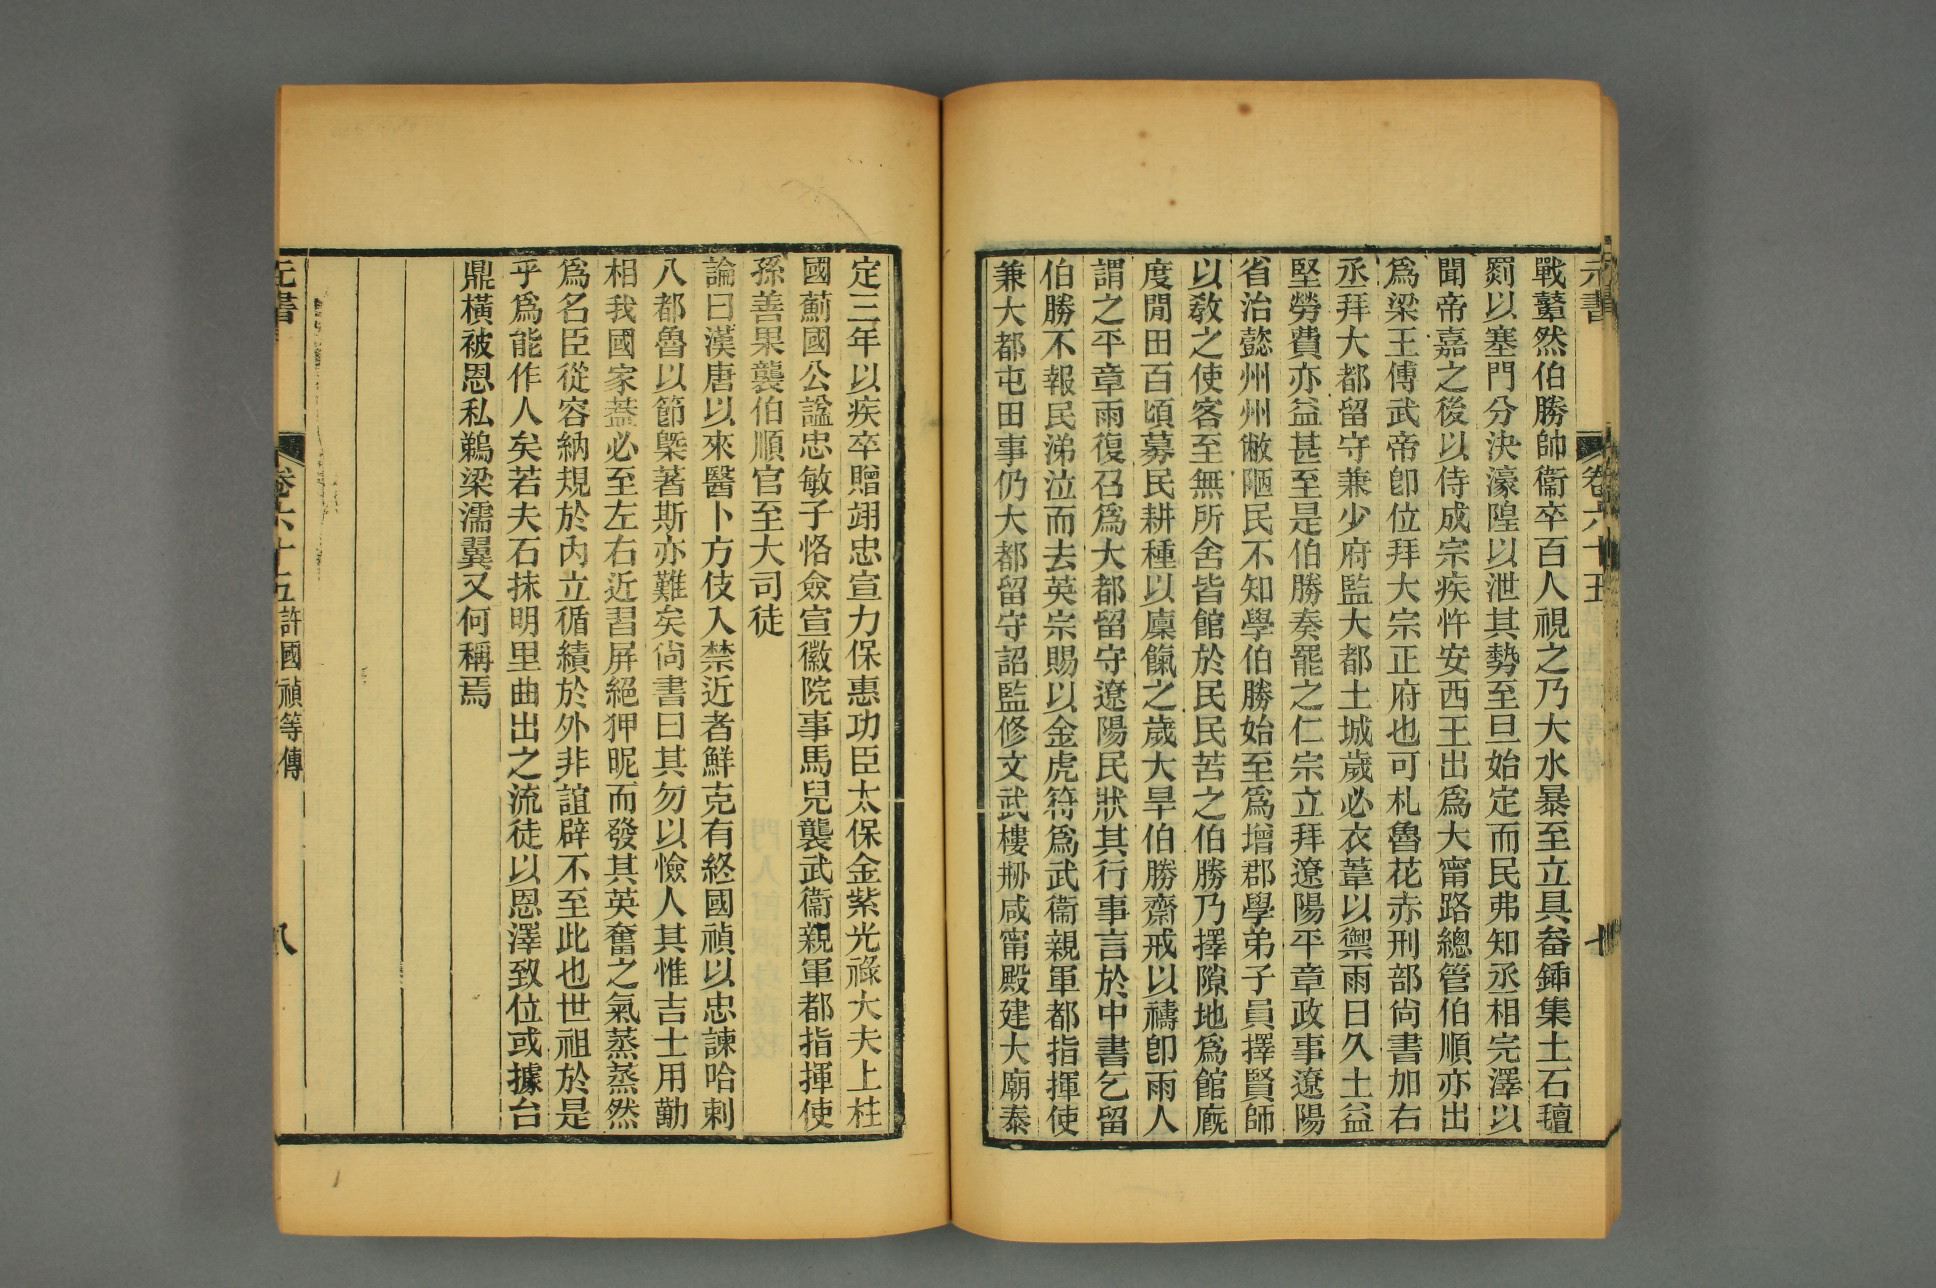 元書 卷六十五 七
戰鼙然伯勝帥衞卒百人視之乃大水暴至立具畚鍤集土石氊
罽以塞門分決濠隍以泄其勢至旦始定而民弗知丞相完澤以
聞帝嘉之後以侍成宗疾忤安西王出爲大甯路總管伯順亦出
爲梁王傅武帝卽位拜大宗正府也可札魯花赤刑部尙書加右
丞拜大都留守兼少府監大都土城歲必衣葦以禦雨日久土益
堅勞費亦益甚至是伯勝奏罷之仁宗立拜遼陽平章政事遼陽
省治懿州州敝陋民不知學伯勝始至爲增郡學弟子員擇賢師
以敎之使客至無所舍皆館於民民苦之伯勝乃擇隙地爲館廐
度閒田百頃募民耕種以廩餼之歲大旱伯勝齋戒以禱卽雨人
謂之平章雨復召爲大都留守遼陽民狀其行事言於中書乞留
伯勝不報民涕泣而去英宗賜以金虎符爲武衞親軍都指揮使
兼大都屯田事仍大都留守詔監修文武樓刱咸甯殿建大廟泰
定三年以疾卒贈翊忠宣力保惠功臣太保金紫光祿大夫上柱
國薊國公諡忠敏子恪僉宣徽院事馬兒襲武衞親軍都指揮使
孫善果襲伯順官至大司徒
論曰漢唐以來醫卜方伎入禁近者鮮克有終國禎以忠諫哈剌
八都魯以節槩著斯亦難矣尙書曰其勿以憸人其惟吉士用勱
相我國家蓋必至左右近習屏絕狎昵而發其英奮之氣蒸蒸然
爲名臣從容納規於內立循績於外非誼辟不至此也世祖於是
乎爲能作人矣若夫石抹明里曲出之流徒以恩澤致位或據台
鼎橫被恩私鵜梁濡翼又何稱焉
元書 卷六十五 許國禎等傳 八